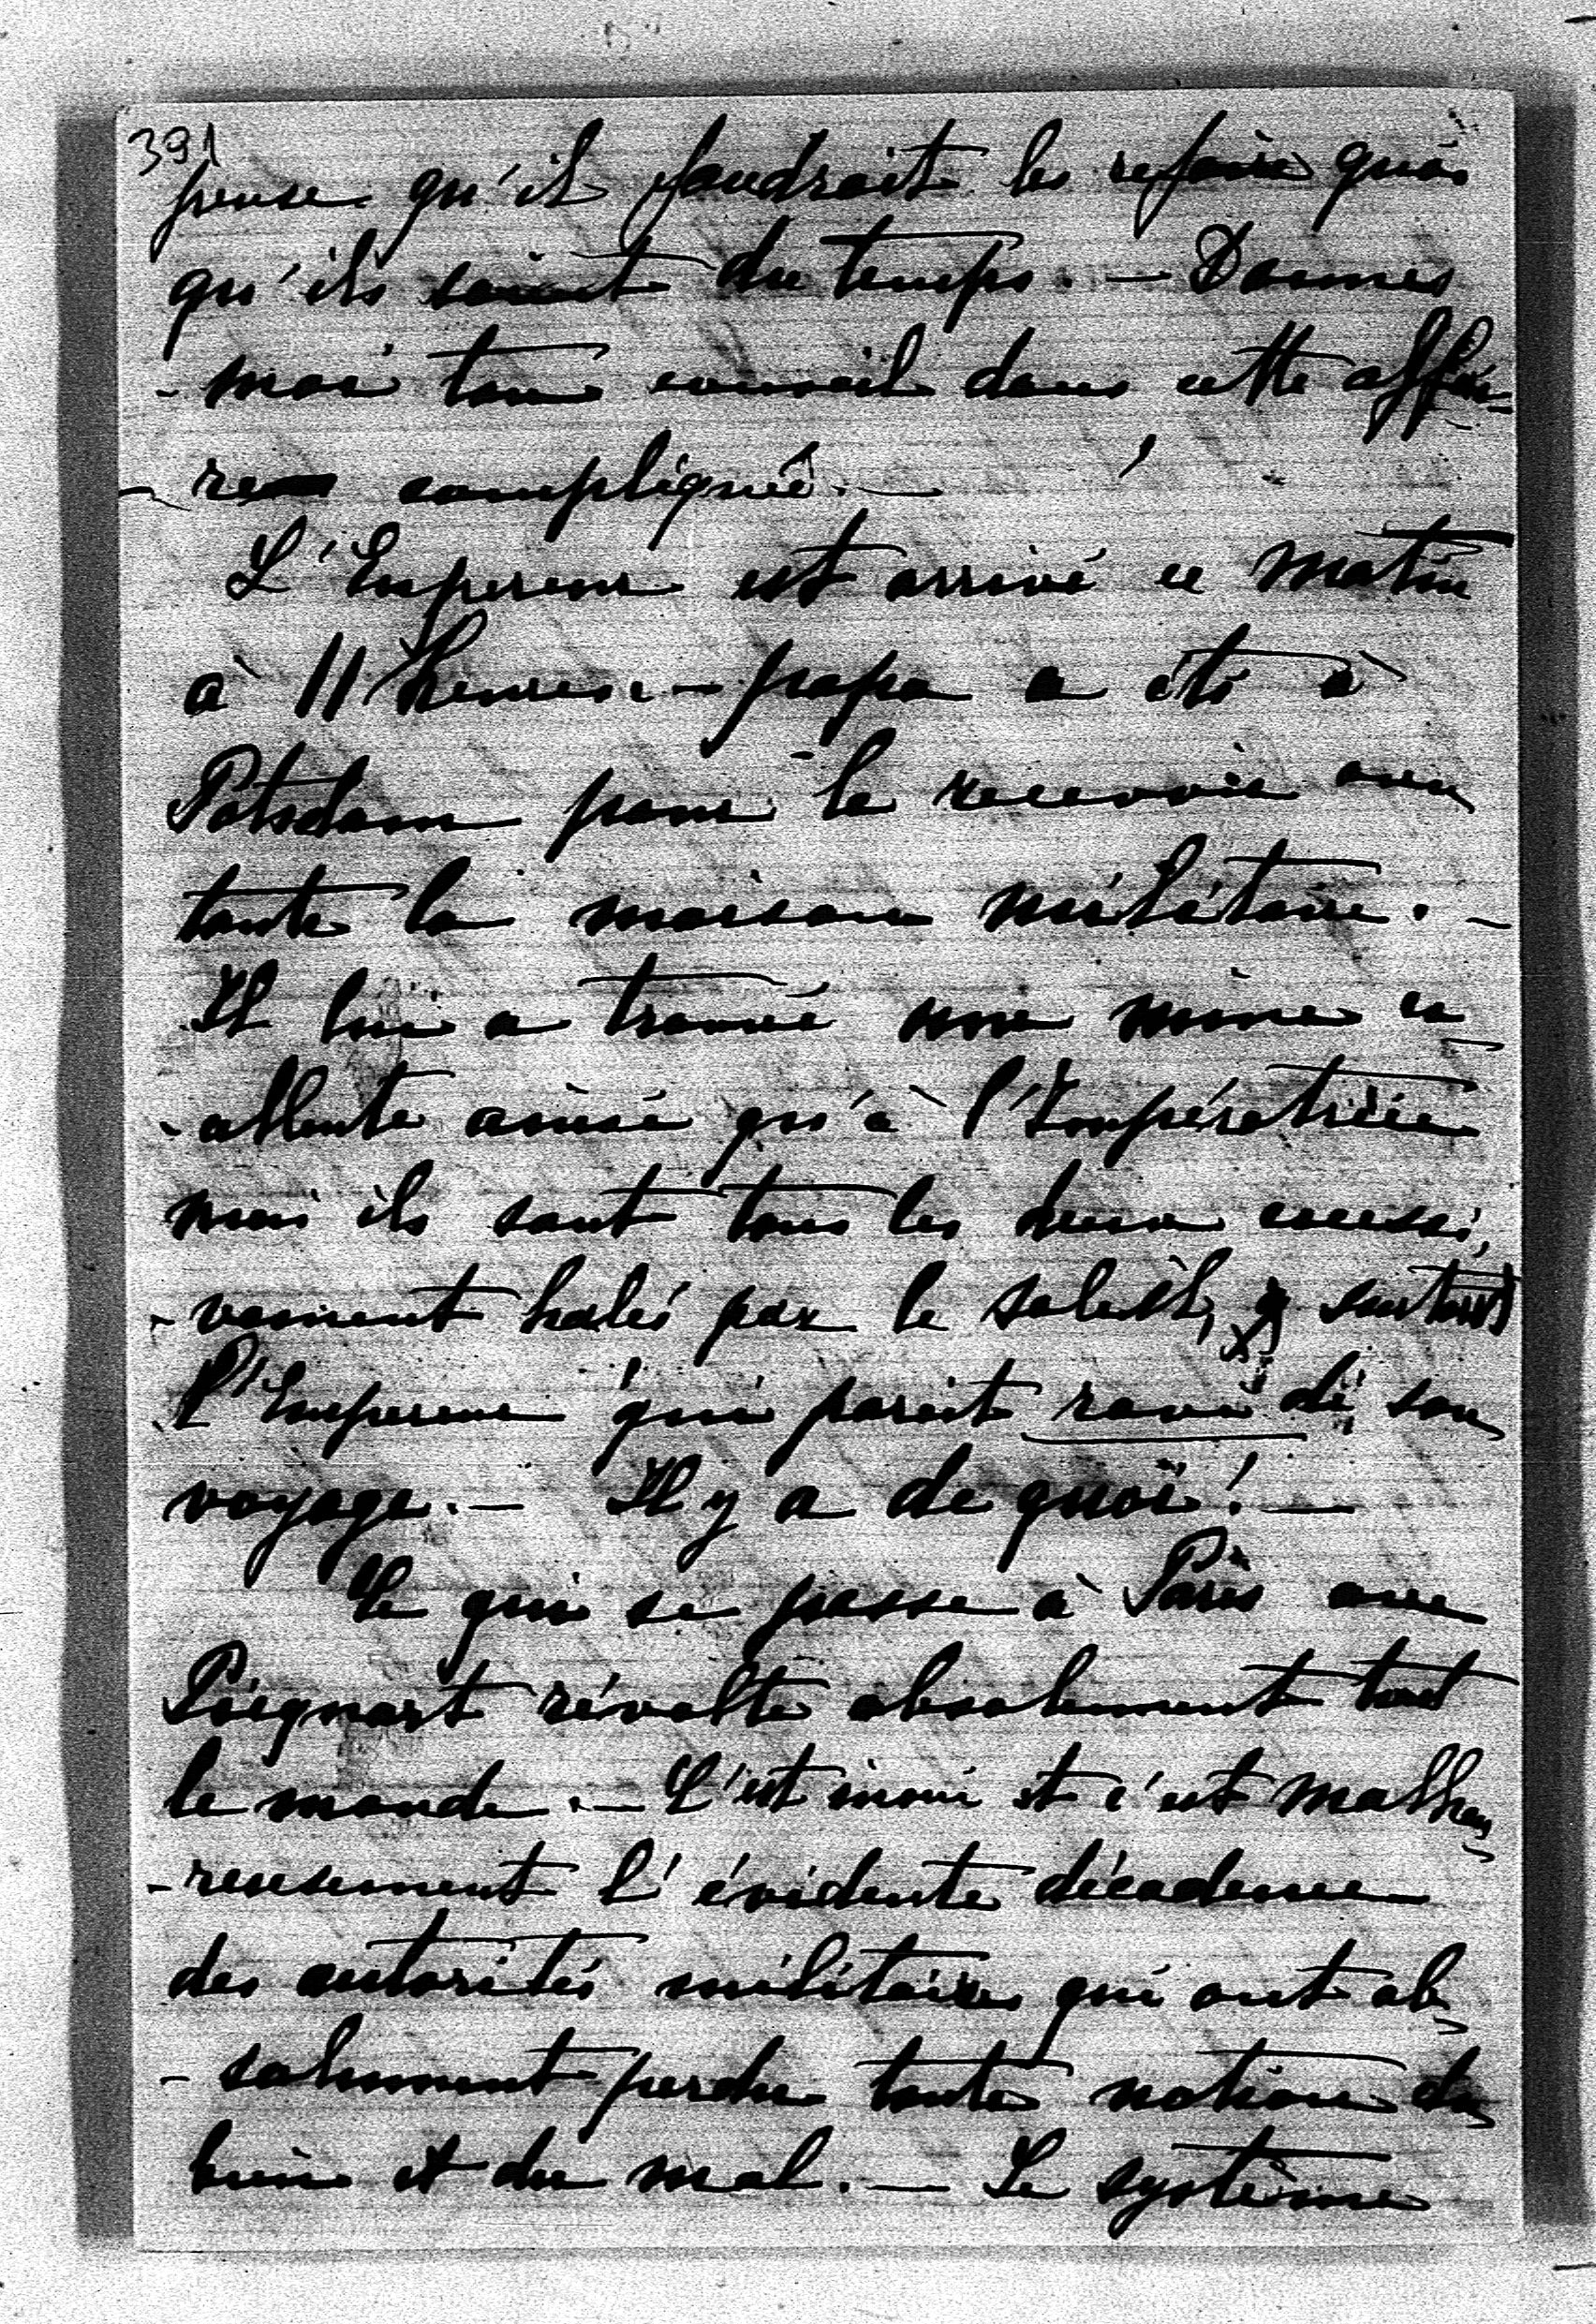 391
pense qu'il faudrait les refaire quoi
qu'ils soient du temps. — Donnes
- moi ton conseil dans cette affai-
- re compliquée. —
L'Empereur est arrivé ce matin
à 11 heures. — papa a été à
Potsdam pour le recevoir avec
toute la maison militaire. —
Il lui a trouvé une mine ex-
- cellente ainsi qu'à l'Impératrice
mais ils sont tous les deux excessi,
- vement halés par le soleil, surtout
l'Empereur qui parait ravi de son
voyage. — Il y a de quoi! —
Ce qui se passe à Paris avec
Picquart révolte absolument tout
le monde. — C'est inouï et c'est malheu
- reusement l'évidente décadence
des autorités militaires qui ont ab-
- solument perdu toute notion du
bien et du mal. — Le système